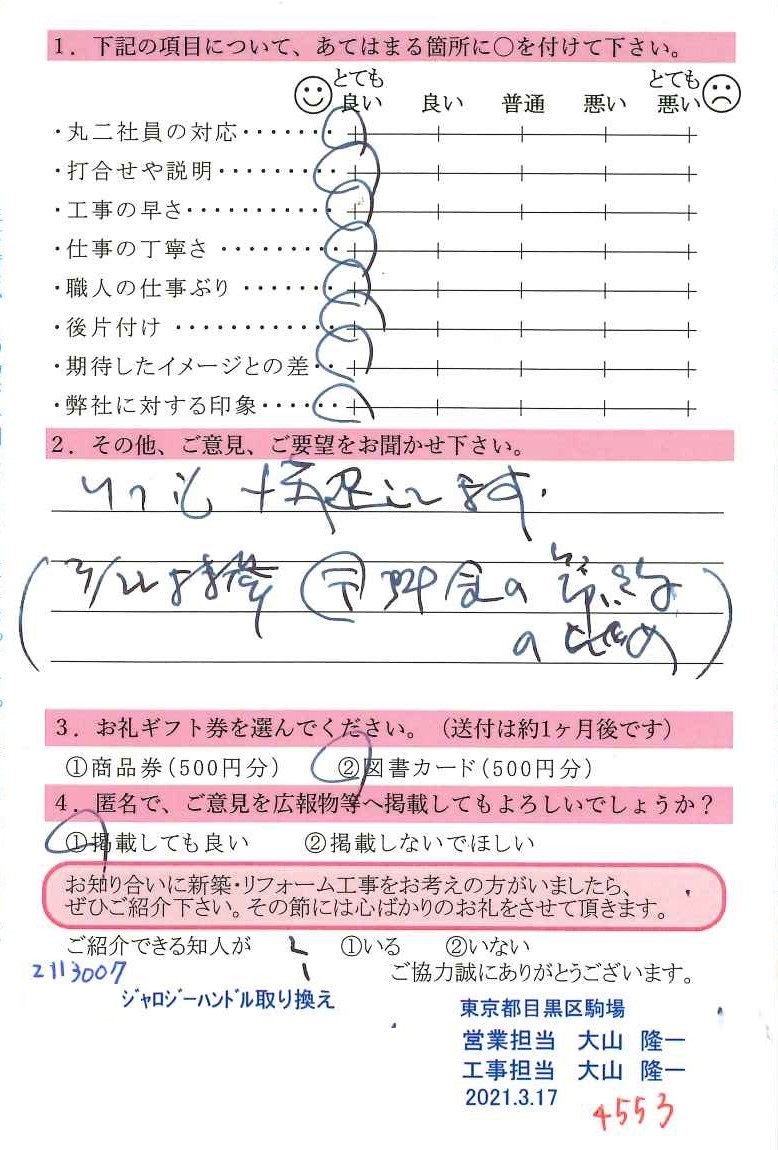 1. 下記の項目について、あてはまる箇所に○を付けて下さい。
とても とても
良い 良い 普通 悪い 悪い
・丸二社員の対応・・・・・・
・打合せや説明・・・・・・・・
・工事の早さ・・・・・・・・・・
・仕事の丁寧さ・・・・・・・・
・職人の仕事ぶり・・・・・・
・後片付け・・・・・・・・・・・
・期待したイメージとの差・・
・弊社に対する印象・・・・・
2. その他、ご意見、ご要望をお聞かせ下さい。
いつも 満足してます。
料金の 節約
の ため
3. お礼ギフト券を選んでください。(送付は約1ヶ月後です)
①商品券(500円分) ②図書カード(500円分)
4. 匿名で、ご意見を広報物等へ掲載してもよろしいでしょうか?
①掲載しても良い ②掲載しないでほしい
お知り合いに新築・リフォーム工事をお考えの方がいましたら、
ぜひご紹介下さい。その節には心ばかりのお礼をさせて頂きます。
ご紹介できる知人が ①いる ②いない
2113007 ご協力誠にありがとうございます。
ジャロジーハンドル取り換え
東京都目黒区駒場
営業担当 大山 隆一
工事担当 大山 隆一
2021.3.17
4553